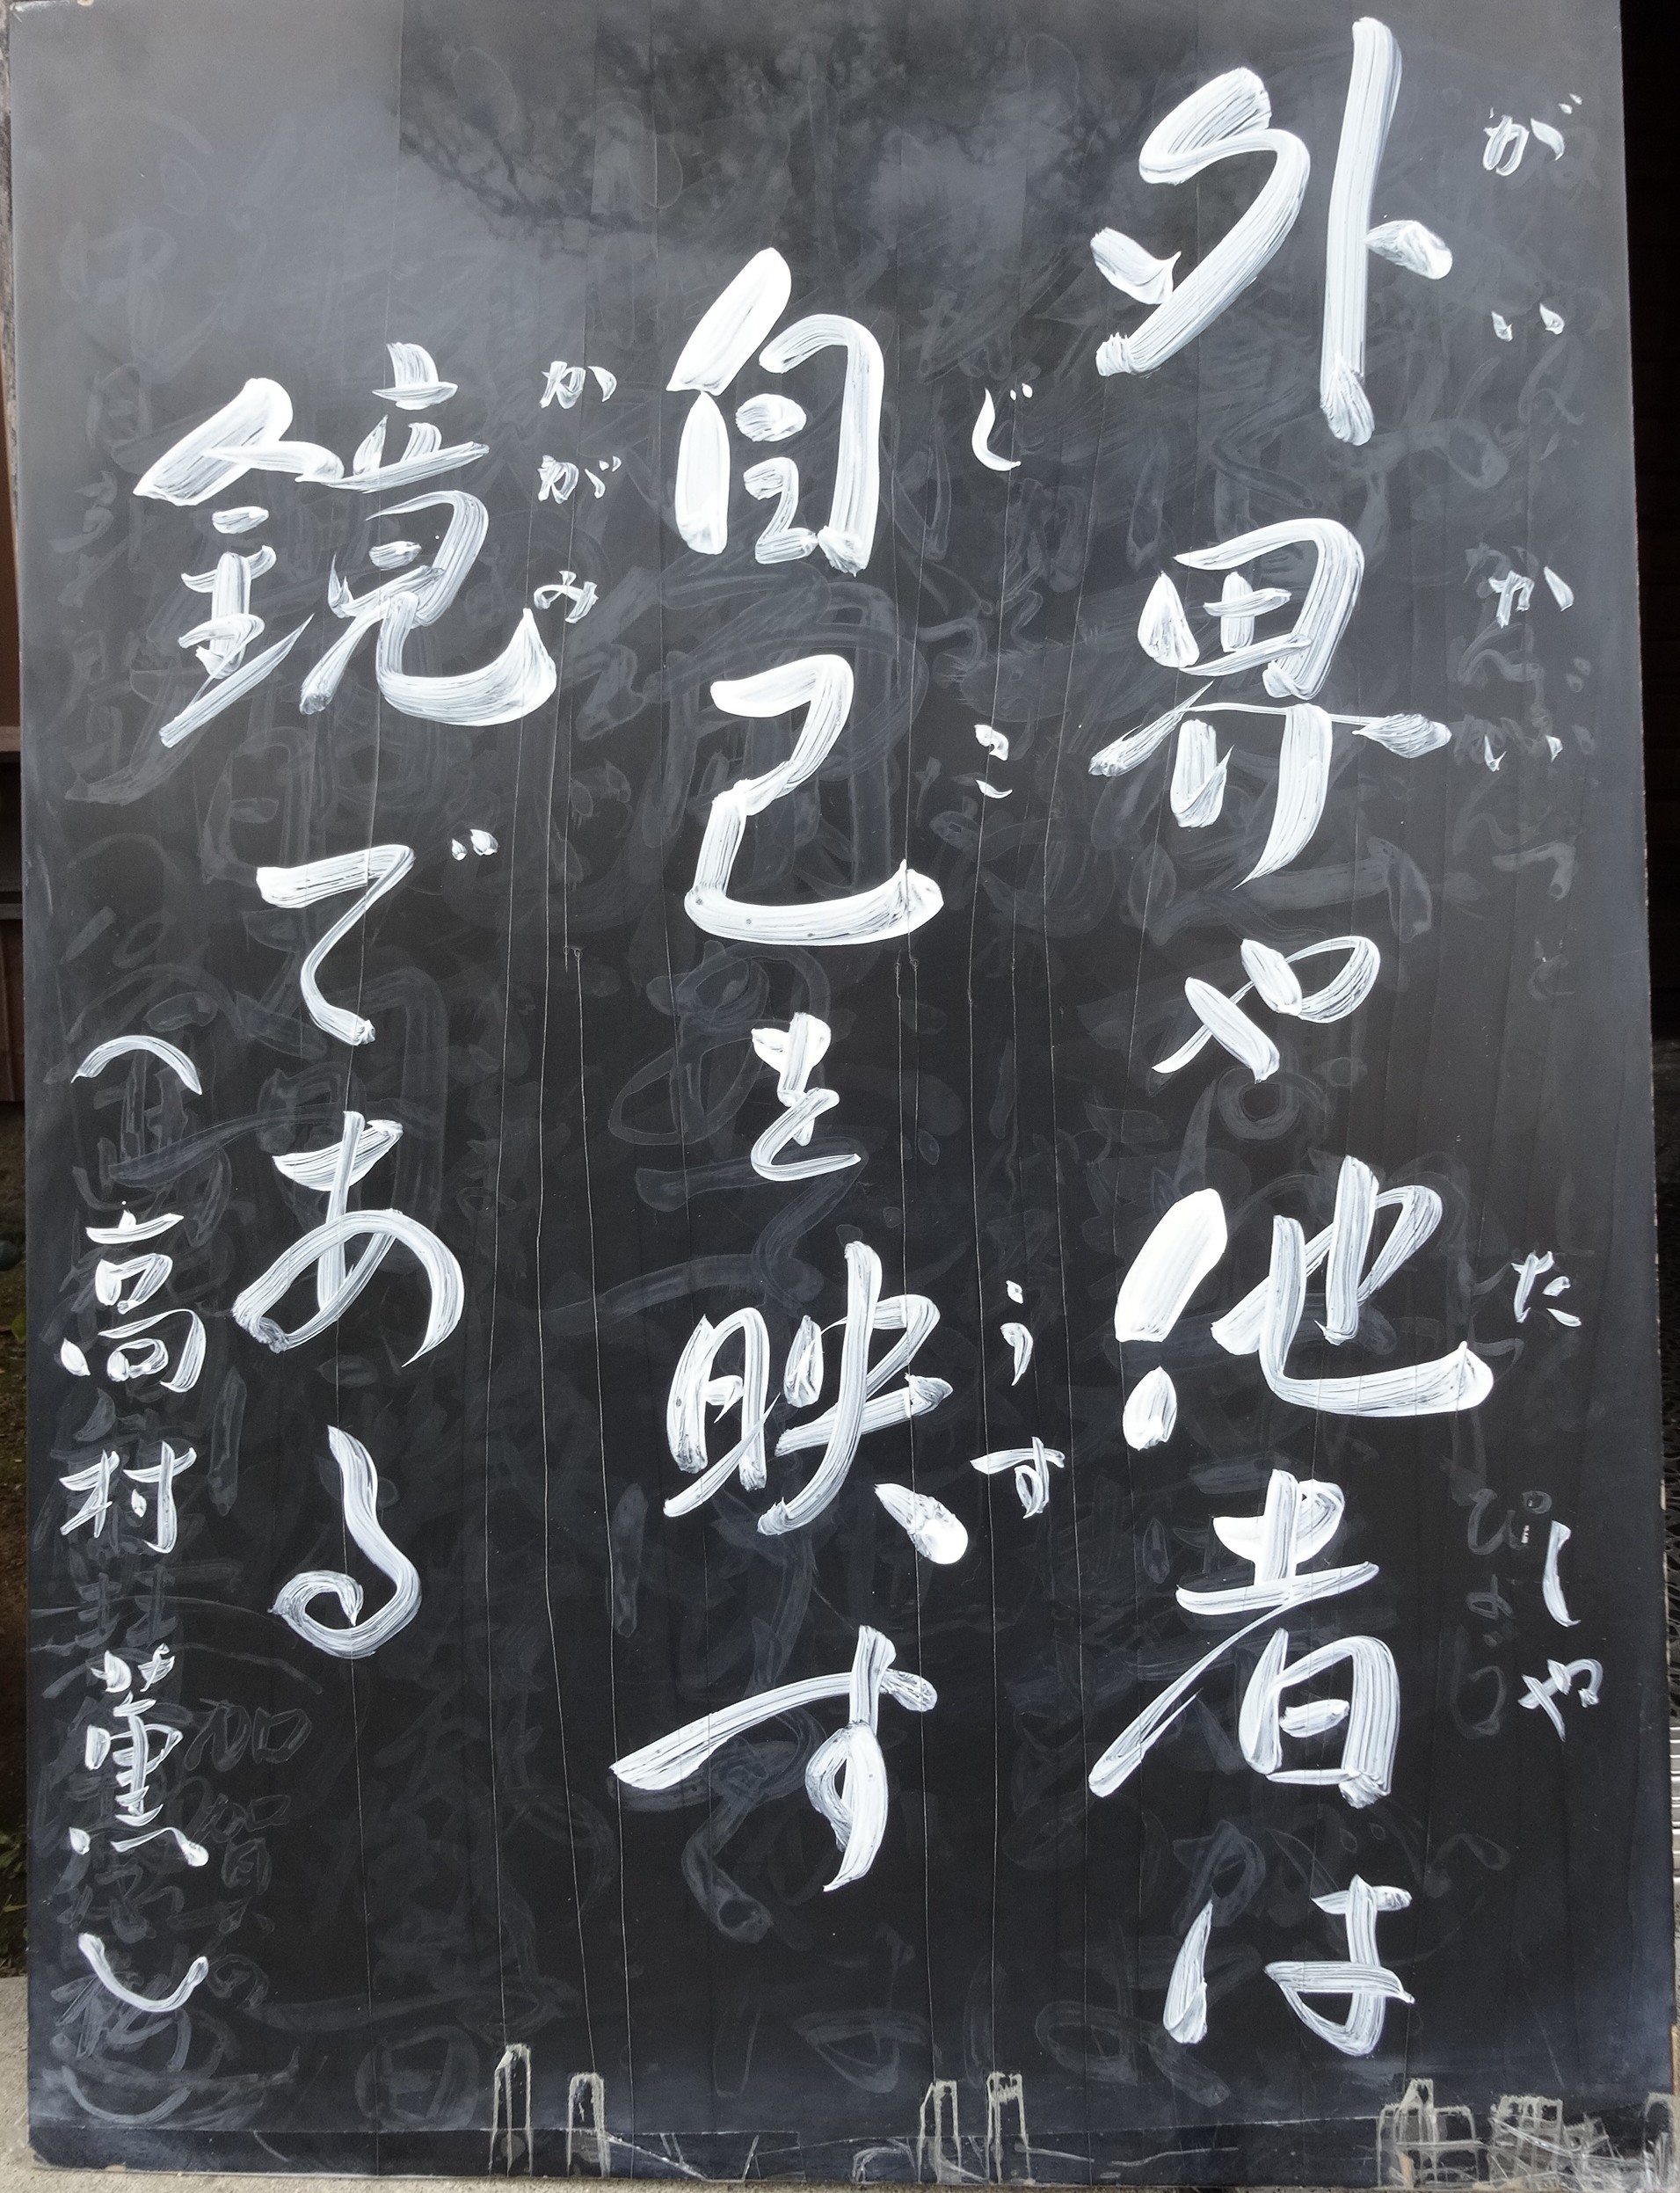 外界や他者は
がいかいだしゃ
自己を映す
じこうす
鏡である
かがみ
(高村薫)